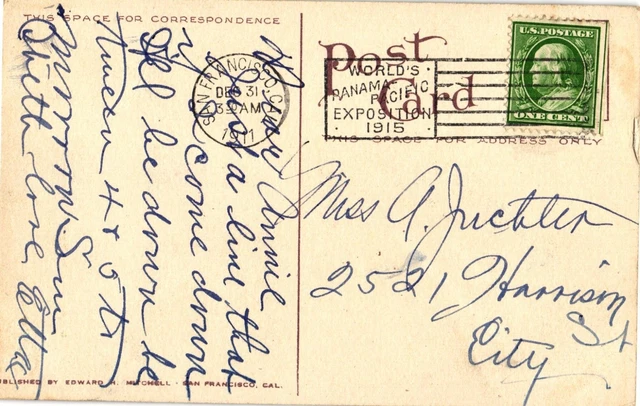 THIS SPACE FOR CORRESPONDENCE
Post Card
THIS SPACE FOR ADDRESS ONLY
SAN FRANCISCO, CAL.
DEC 31
3 30 AM
1911
WORLD'S
PANAMA-PACIFIC
EXPOSITION
1915
U.S. POSTAGE
ONE CENT
Dear Annie
Just a line that
I'll come down
be down be
tween 4 & 5 to
morrow Sun
With love Etta
Miss A. Juchter
2521 Harrison
St
City
PUBLISHED BY EDWARD H. MITCHELL - SAN FRANCISCO, CAL.